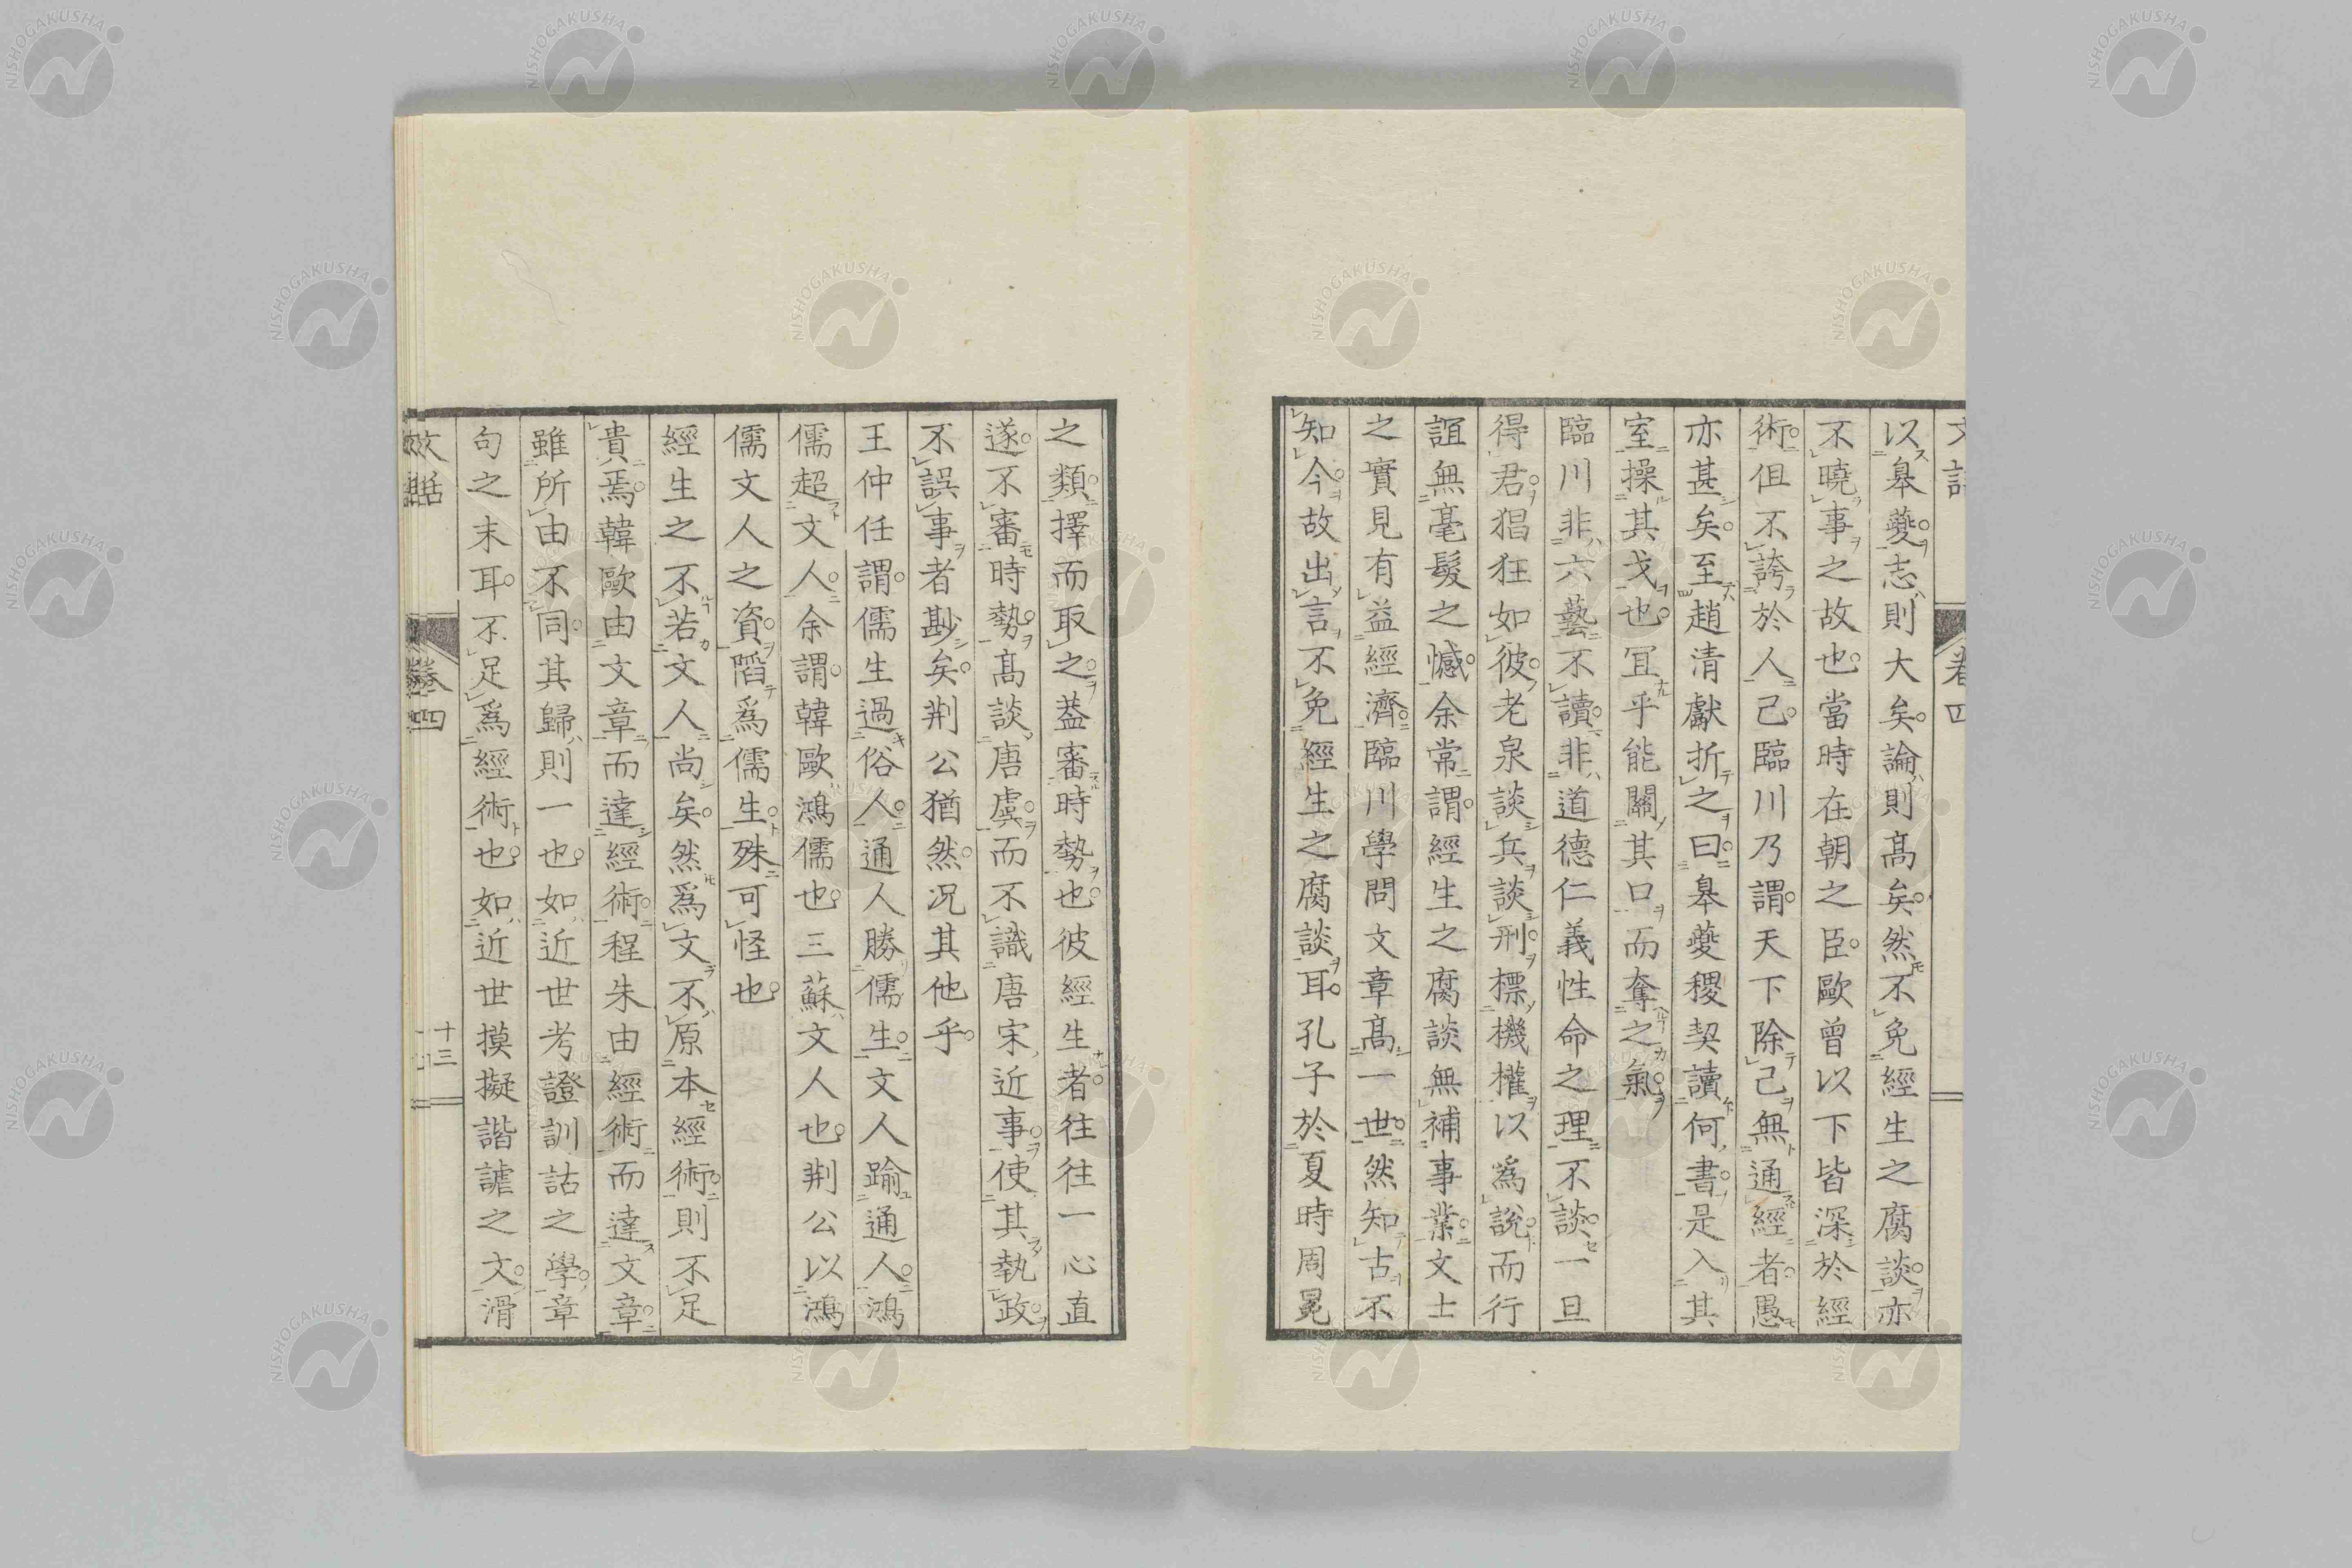 文話
卷四
以皋夔志則大矣論則髙矣然不免經生之腐談亦
不曉事之故也當時在朝之臣歐曾以下皆深於經
術但不誇於人己臨川乃謂天下除己無通經者愚
亦甚矣至趙清獻折之曰皋夔稷契讀何書是入其
室操其戈也冝乎能關其口而奪之氣
臨川非六藝不讀非道德仁義性命之理不談一旦
得君猖狂如彼老泉談兵談刑標機權以爲說而行
誼無毫髮之憾余常謂經生之腐談無補事業文士
之實見有益經濟臨川學問文章髙一世然知古不
知今故出言不免經生之腐談耳孔子於夏時周冕
之類擇而取之葢審時勢也彼經生者往往一心直
遂不審時勢髙談唐虞而不識唐宋近事使其執政
不誤事者尠矣荆公猶然况其他乎
王仲任謂儒生過俗人通人勝儒生文人踰通人鴻
儒超文人余謂韓歐鴻儒也三蘇文人也荆公以鴻
儒文人之資蹈爲儒生殊可怪也
經生之不若文人尚矣然爲文不原本經術則不足
貴焉韓歐由文章而達經術程朱由經術而達文章
雖所由不同其歸則一也如近世考證訓詁之學章
句之末耳不足爲經術也如近世摸擬諧謔之文滑
文話
卷四
十三
NISHOGAKUSHA